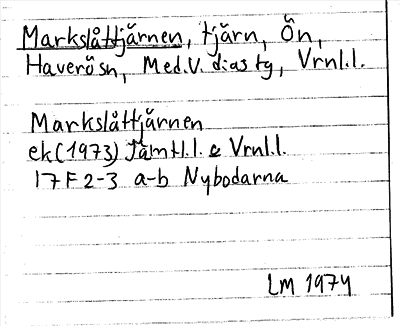 Markslåttjärnen, tjärn, Ön,
Haverösn, Med.V. diastg, Vrnl.l.
Markslåttjärnen
ek(1973) Jämtl.l. & Vrnl.l.
17F2-3 a-b Nybodarna
LM 1974